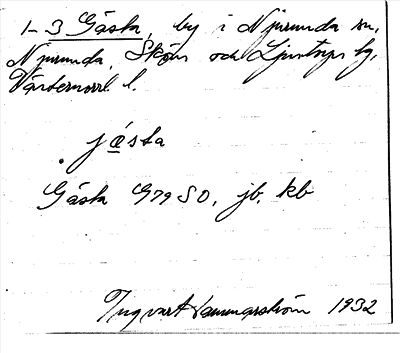 1-3 Gåsta, by i Njurunda sn,
Njurunda, Sköns och Ljustorps hg,
Västernorrl. l.
jåsta
Gåsta G79 SO, jb, kb
Ingvart Hammarström 1932